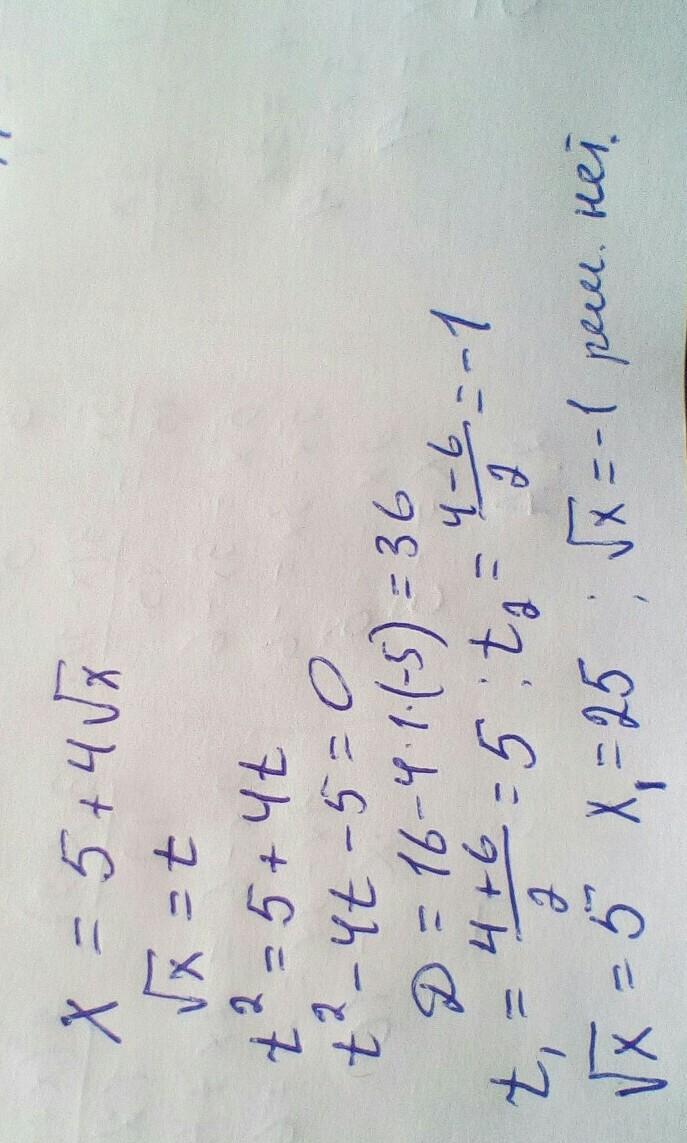 x = 5 + 4√x
√x = t
t² = 5 + 4t
t² - 4t - 5 = 0
D = 16 - 4·1·(-5) = 36
t₁ = (4+6)/2 = 5 ; t₂ = (4-6)/2 = -1
√x = 5 x₁ = 25 ; √x = -1 реш. нет.